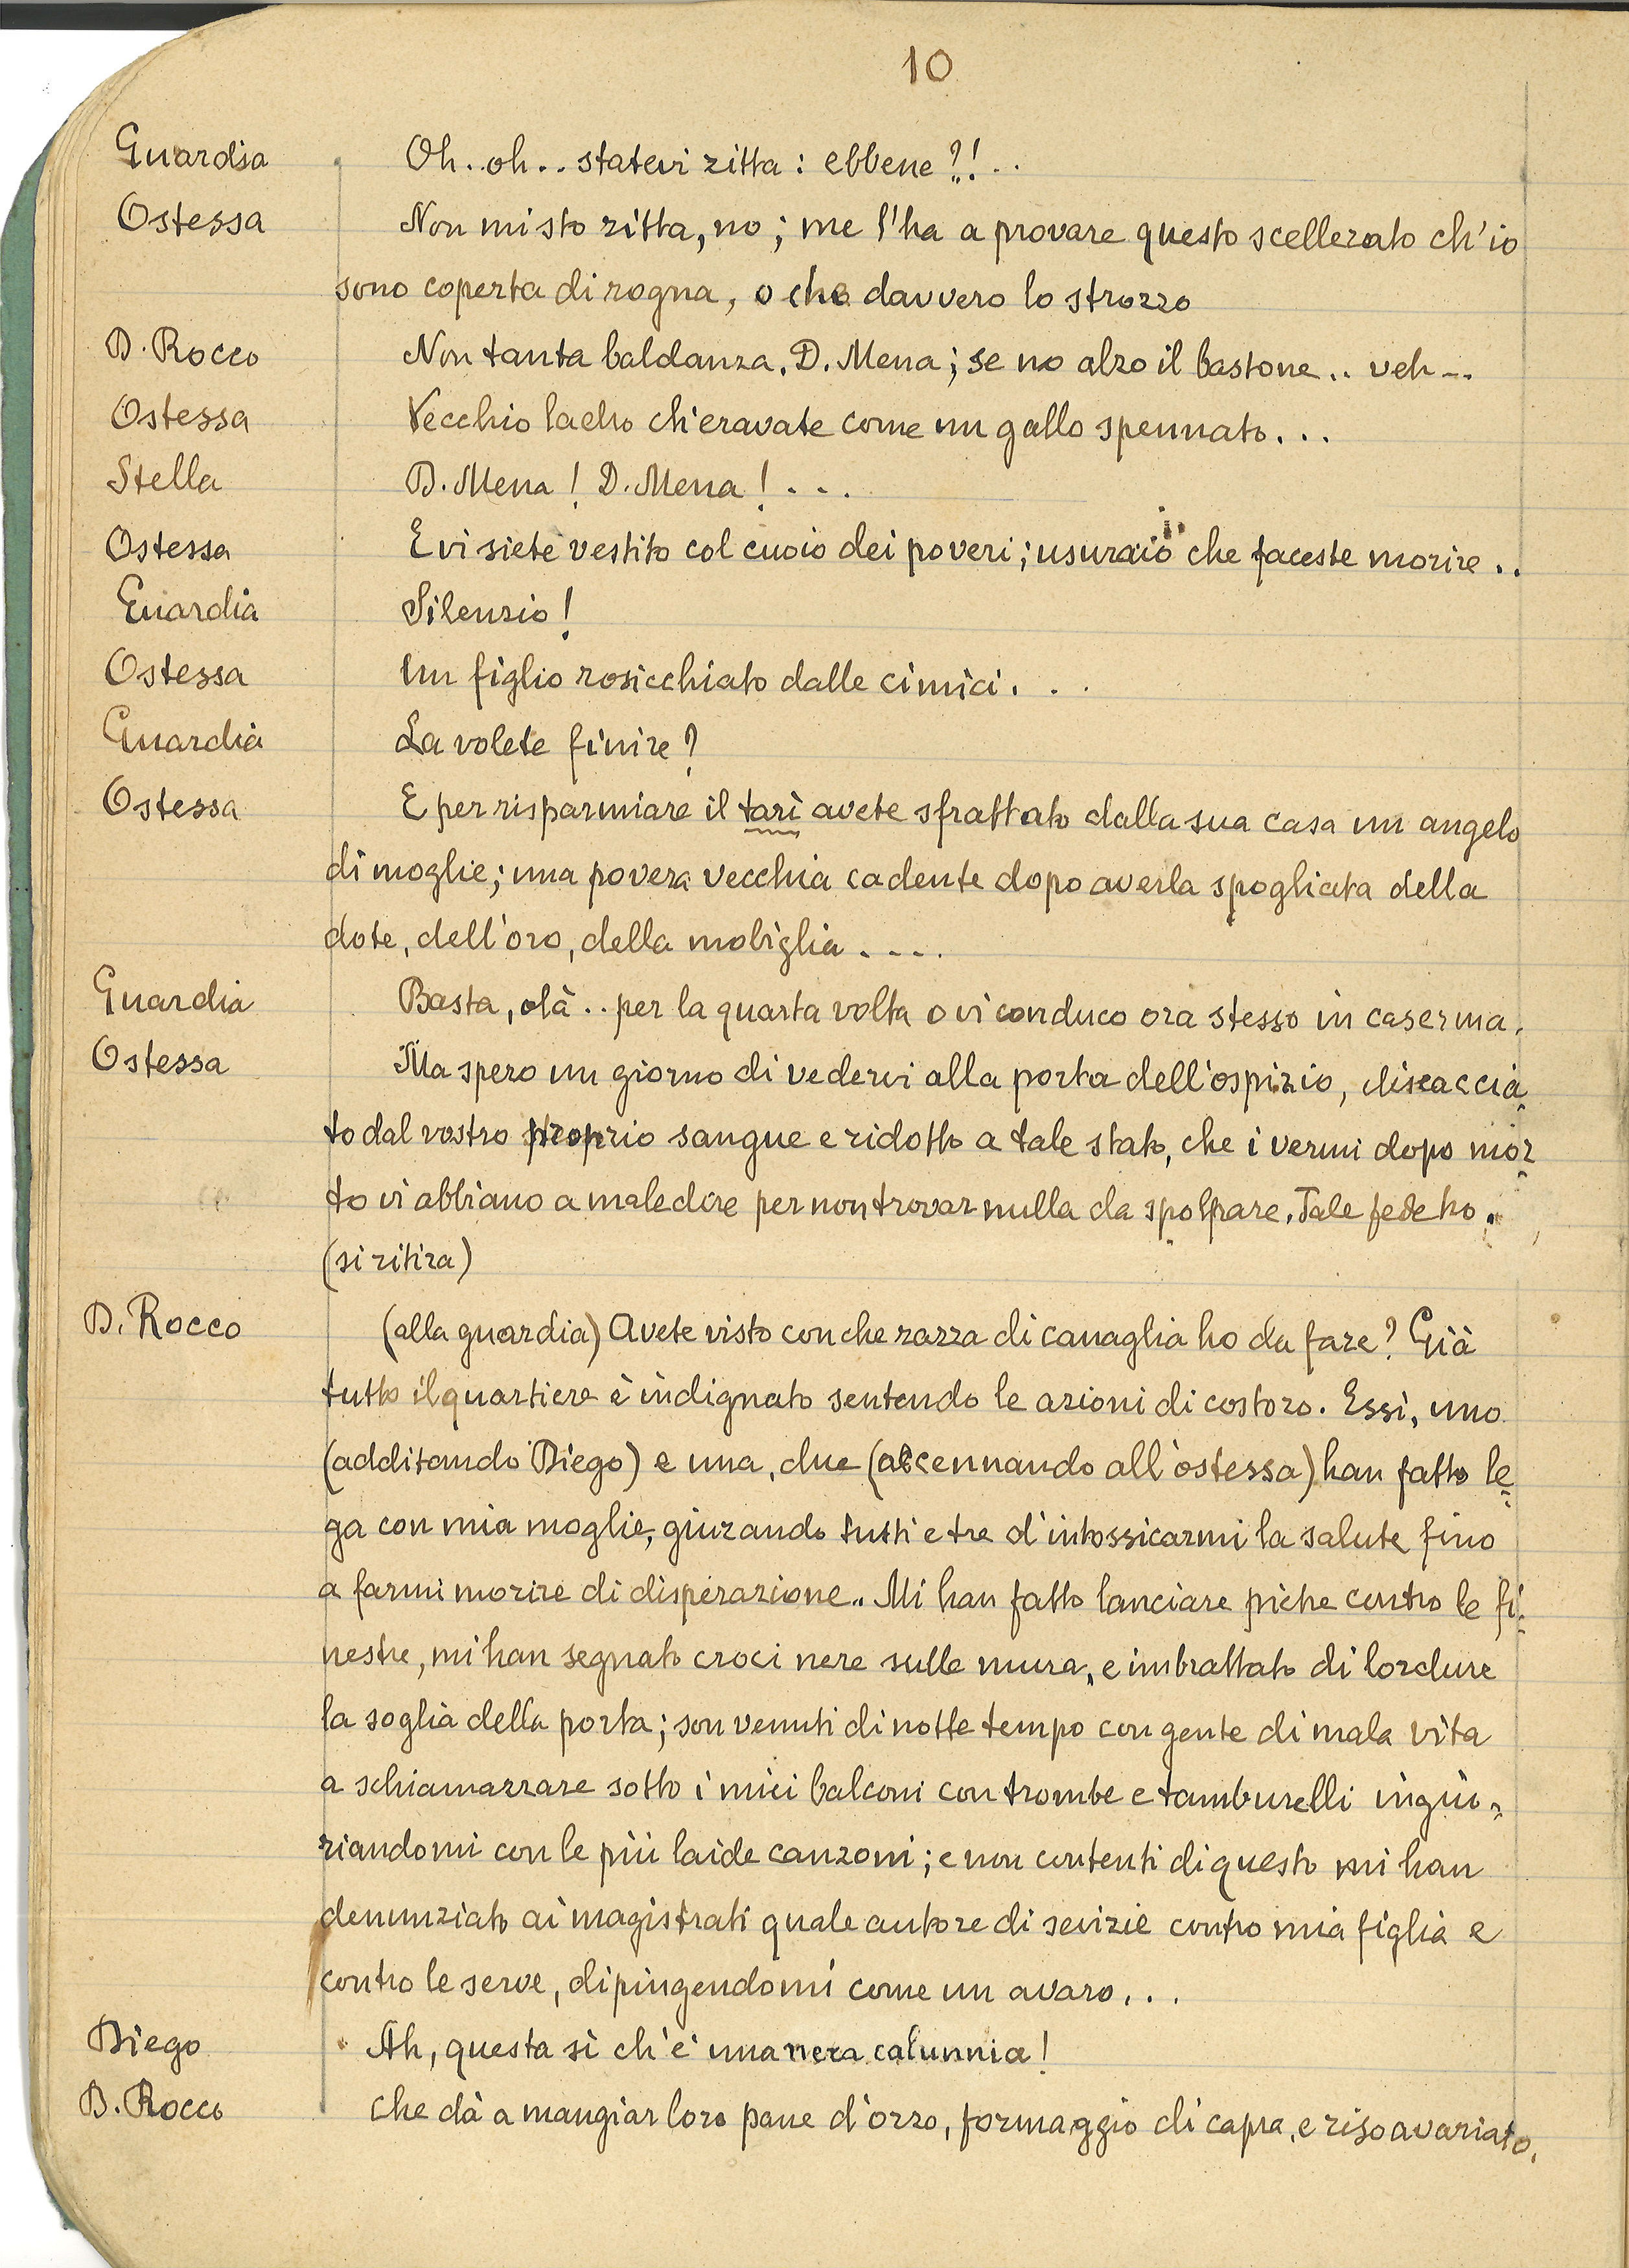 10
Guardia Oh..oh.. statevi zitta: ebbene?!..
Ostessa Non mi sto zitta, no; me l'ha a provare questo scellerato ch'io
sono coperta di rogna, o che davvero lo strozzo
D. Rocco Non tanta baldanza, D. Mena; se no alzo il bastone.. veh...
Ostessa Vecchio ladro ch'eravate come un gallo spennato...
Stella D. Mena! D. Mena!...
Ostessa E vi siete vestito col cuoio dei poveri; usuraio che faceste morire..
Guardia Silenzio!
Ostessa Un figlio rosicchiato dalle cimici...
Guardia La volete finire?
Ostessa E per risparmiare il tarì avete sfrattato dalla sua casa un angelo
di moglie; una povera vecchia cadente dopo averla spogliata della
dote, dell'oro, della mobiglia....
Guardia Basta, olà.. per la quarta volta o vi conduco ora stesso in caserma.
Ostessa Ma spero un giorno di vedervi alla porta dell'ospizio, discaccia=
to dal vostro proprio sangue e ridotto a tale stato, che i vermi dopo mor=
to vi abbiano a maledire per non trovar nulla da spolpare. Tale fede ho.
(si ritira)
D. Rocco (alla guardia) Avete visto con che razza di canaglia ho da fare? Già
tutto il quartiere è indignato sentendo le azioni di costoro. Essi, uno
(additando Diego) e una, due (accennando all'ostessa) han fatto le=
ga con mia moglie, giurando tutti e tre d'intossicarmi la salute fino
a farmi morire di disperazione.. Mi han fatto lanciare piche contro le fi=
nestre, mi han segnato croci nere sulle mura, e imbrattato di lordure
la soglia della porta; son venuti di notte tempo con gente di mala vita
a schiamazzare sotto i miei balconi con trombe e tamburelli ingiu=
riandomi con le più laide canzoni; e non contenti di questo mi han
denunziato ai magistrati quale autore di sevizie contro mia figlia e
contro le serve, dipingendomi come un avaro...
Diego Ah, questa sì ch'è una nera calunnia!
D. Rocco Che dà a mangiar loro pane d'orzo, formaggio di capra, e riso avariato.